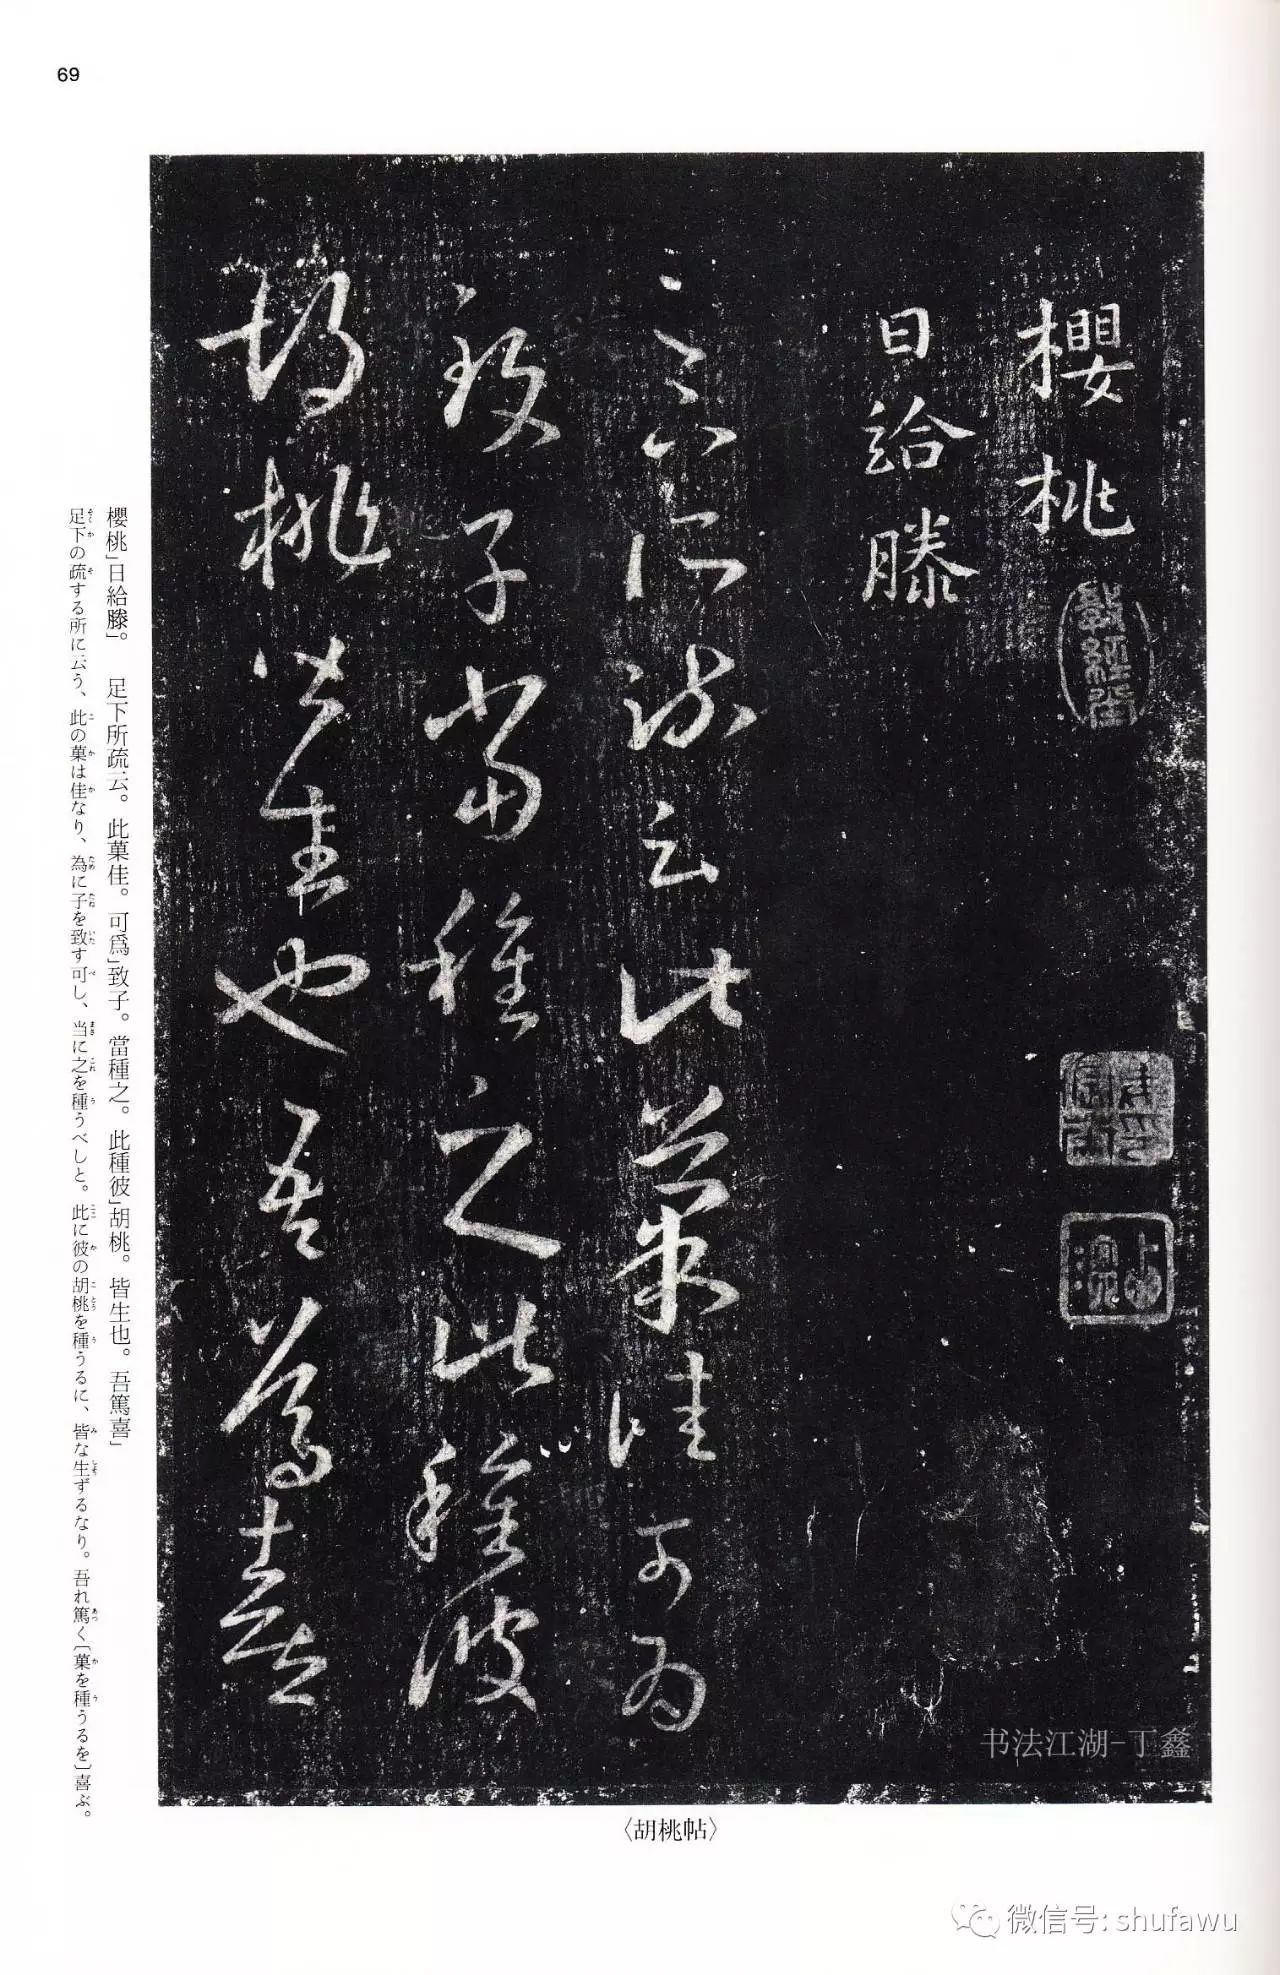 69
櫻桃
日給滕
足下所疏云此菓佳可為
致子當種之此種彼
胡桃皆生也吾篤喜
櫻桃」日給滕」。　足下所疏云。此菓佳。可爲」致子。當種之。此種彼」胡桃。皆生也。吾篤喜」
足下の疏する所に云う、此の菓は佳なり、為に子を致す可し、当に之を種うべしと。此に彼の胡桃を種うるに、皆な生ずるなり。吾れ篤く〔菓を種うるを〕喜ぶ。
〈胡桃帖〉
书法江湖-丁鑫
微信号: shufawu